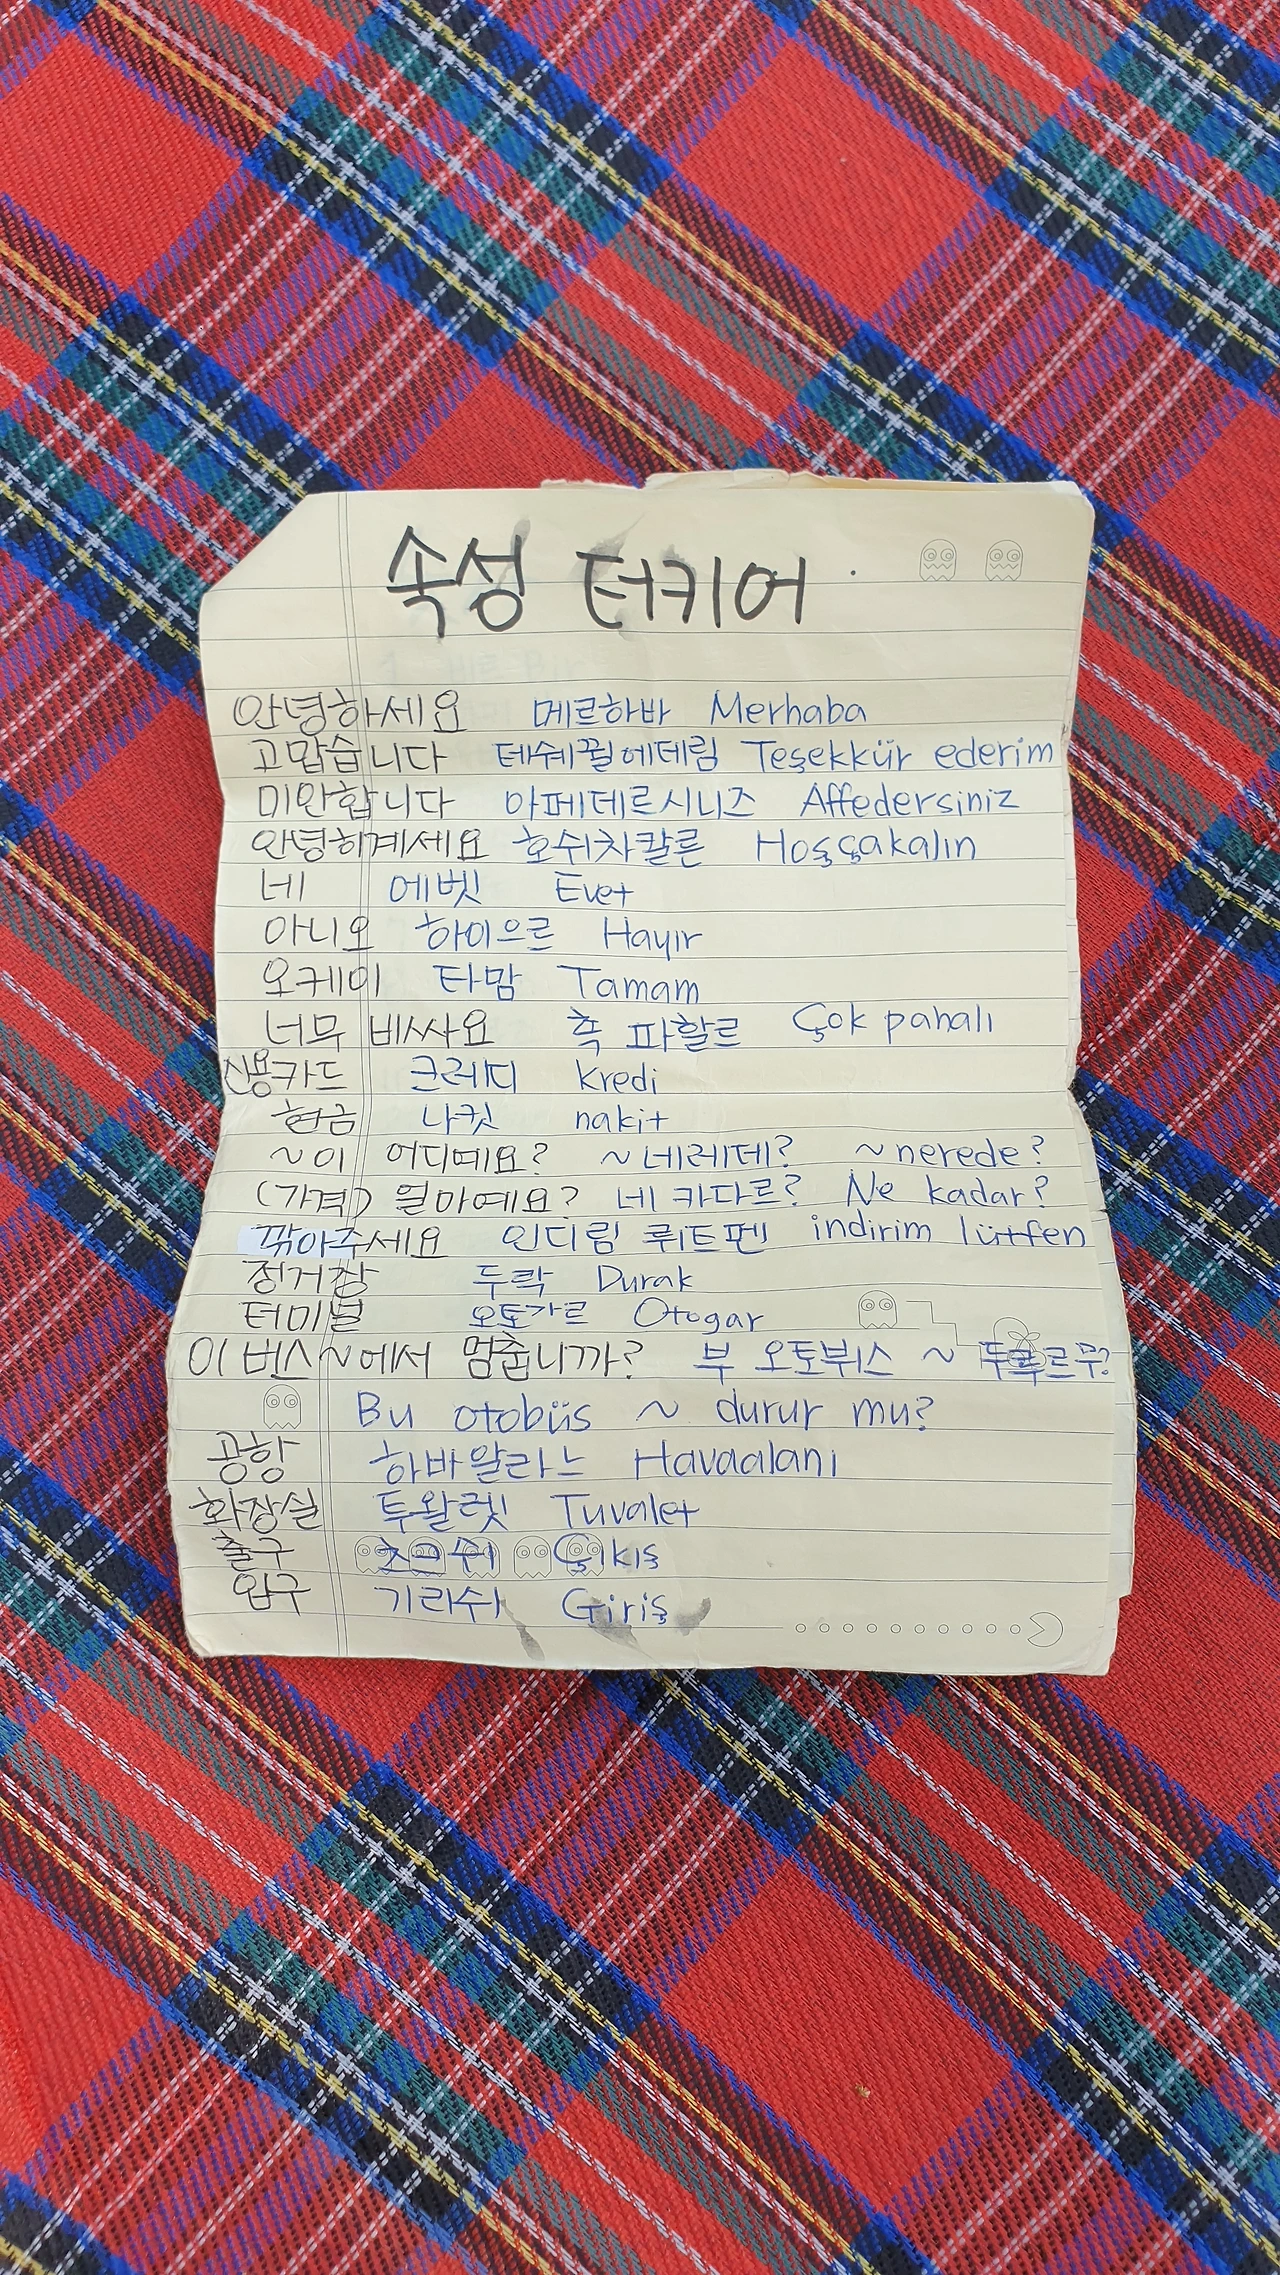 속성 터키어
안녕하세요 메르하바 Merhaba
고맙습니다 테쉐뀔에데림 Teşekkür ederim
미안합니다 아페데르시니즈 Affedersiniz
안녕히계세요 호쉬차칼른 Hoşçakalın
네 에벳 Evet
아니오 하이으르 Hayır
오케이 타맘 Tamam
너무 비싸요 촉 파할르 Çok pahalı
신용카드 크레디 kredi
현금 나킷 nakit
~이 어디예요? ~네레데? ~nerede?
(가격) 얼마예요? 네 카다르? Ne kadar?
깎아주세요 인디림 뤼트펜 indirim lütfen
정거장 두락 Durak
터미널 오토가르 Otogar
이 버스~에서 멈춥니까? 부 오토뷔스 ~ 두루르무?
Bu otobüs ~ durur mu?
공항 하바알라느 Havaalanı
화장실 투왈렛 Tuvalet
출구 츠크쉬 Çıkış
입구 기리쉬 Giriş